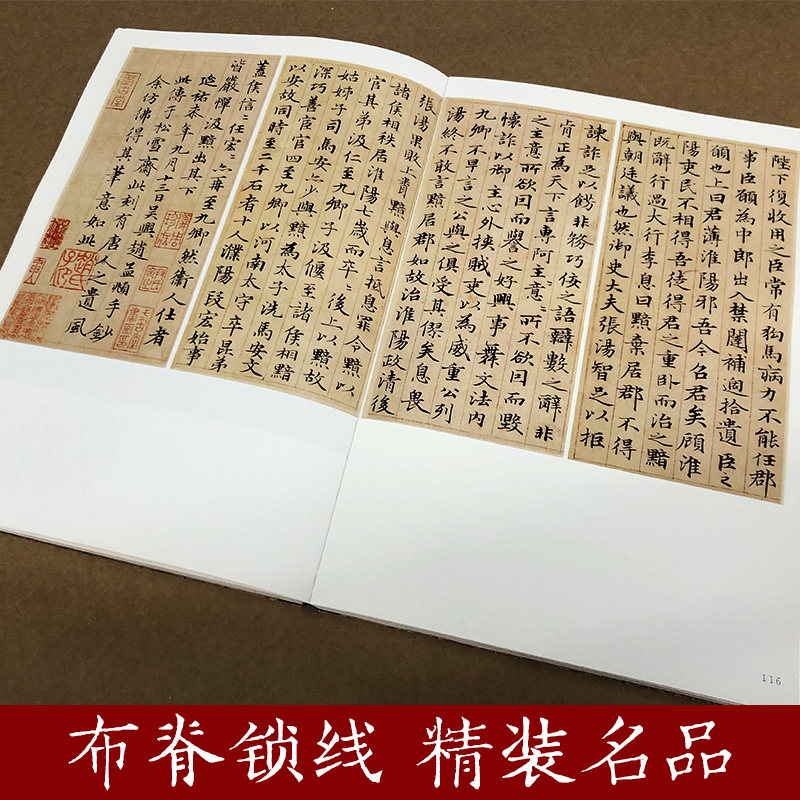 陛下復收用之臣常有狗馬病力不能任郡
事臣願為中郎出入禁闥補過拾遺臣之
願也上曰君薄淮陽邪吾今召君矣顧淮
陽吏民不相得吾徒得君之重臥而治之黯
既辭行過大行李息曰黯棄居郡不得
與朝廷議也然御史大夫張湯智足以拒
諫詐足以飾非務巧佞之語辯數之辭非
肯正為天下言專阿主意〻所不欲因而毀
之主意所欲因而譽之好興事舞文法內
懷詐以御主心外挾賊吏以為威重公列
九卿不早言之公與之俱受其僇矣息畏
湯終不敢言黯居郡如故治淮陽政清後
張湯果敗上聞黯與息言抵息罪令黯以
諸侯相秩居淮陽七歲而卒〻後上以黯故
官其弟汲仁至九卿子汲偃至諸侯相黯
姑姊子司馬安亦少與黯為太子洗馬安文
深巧善宦官四至九卿以河南太守卒昆弟
以安故同時至二千石者十人濮陽段宏始事
蓋侯信〻任宏〻亦再至九卿然衛人仕者
皆嚴憚汲黯出其下
延祐七年九月十三日吳興趙孟頫手鈔
此傳於松雪齋此刻有唐人之遺風
余仿佛得其筆意如此
116
布脊锁线 精装名品